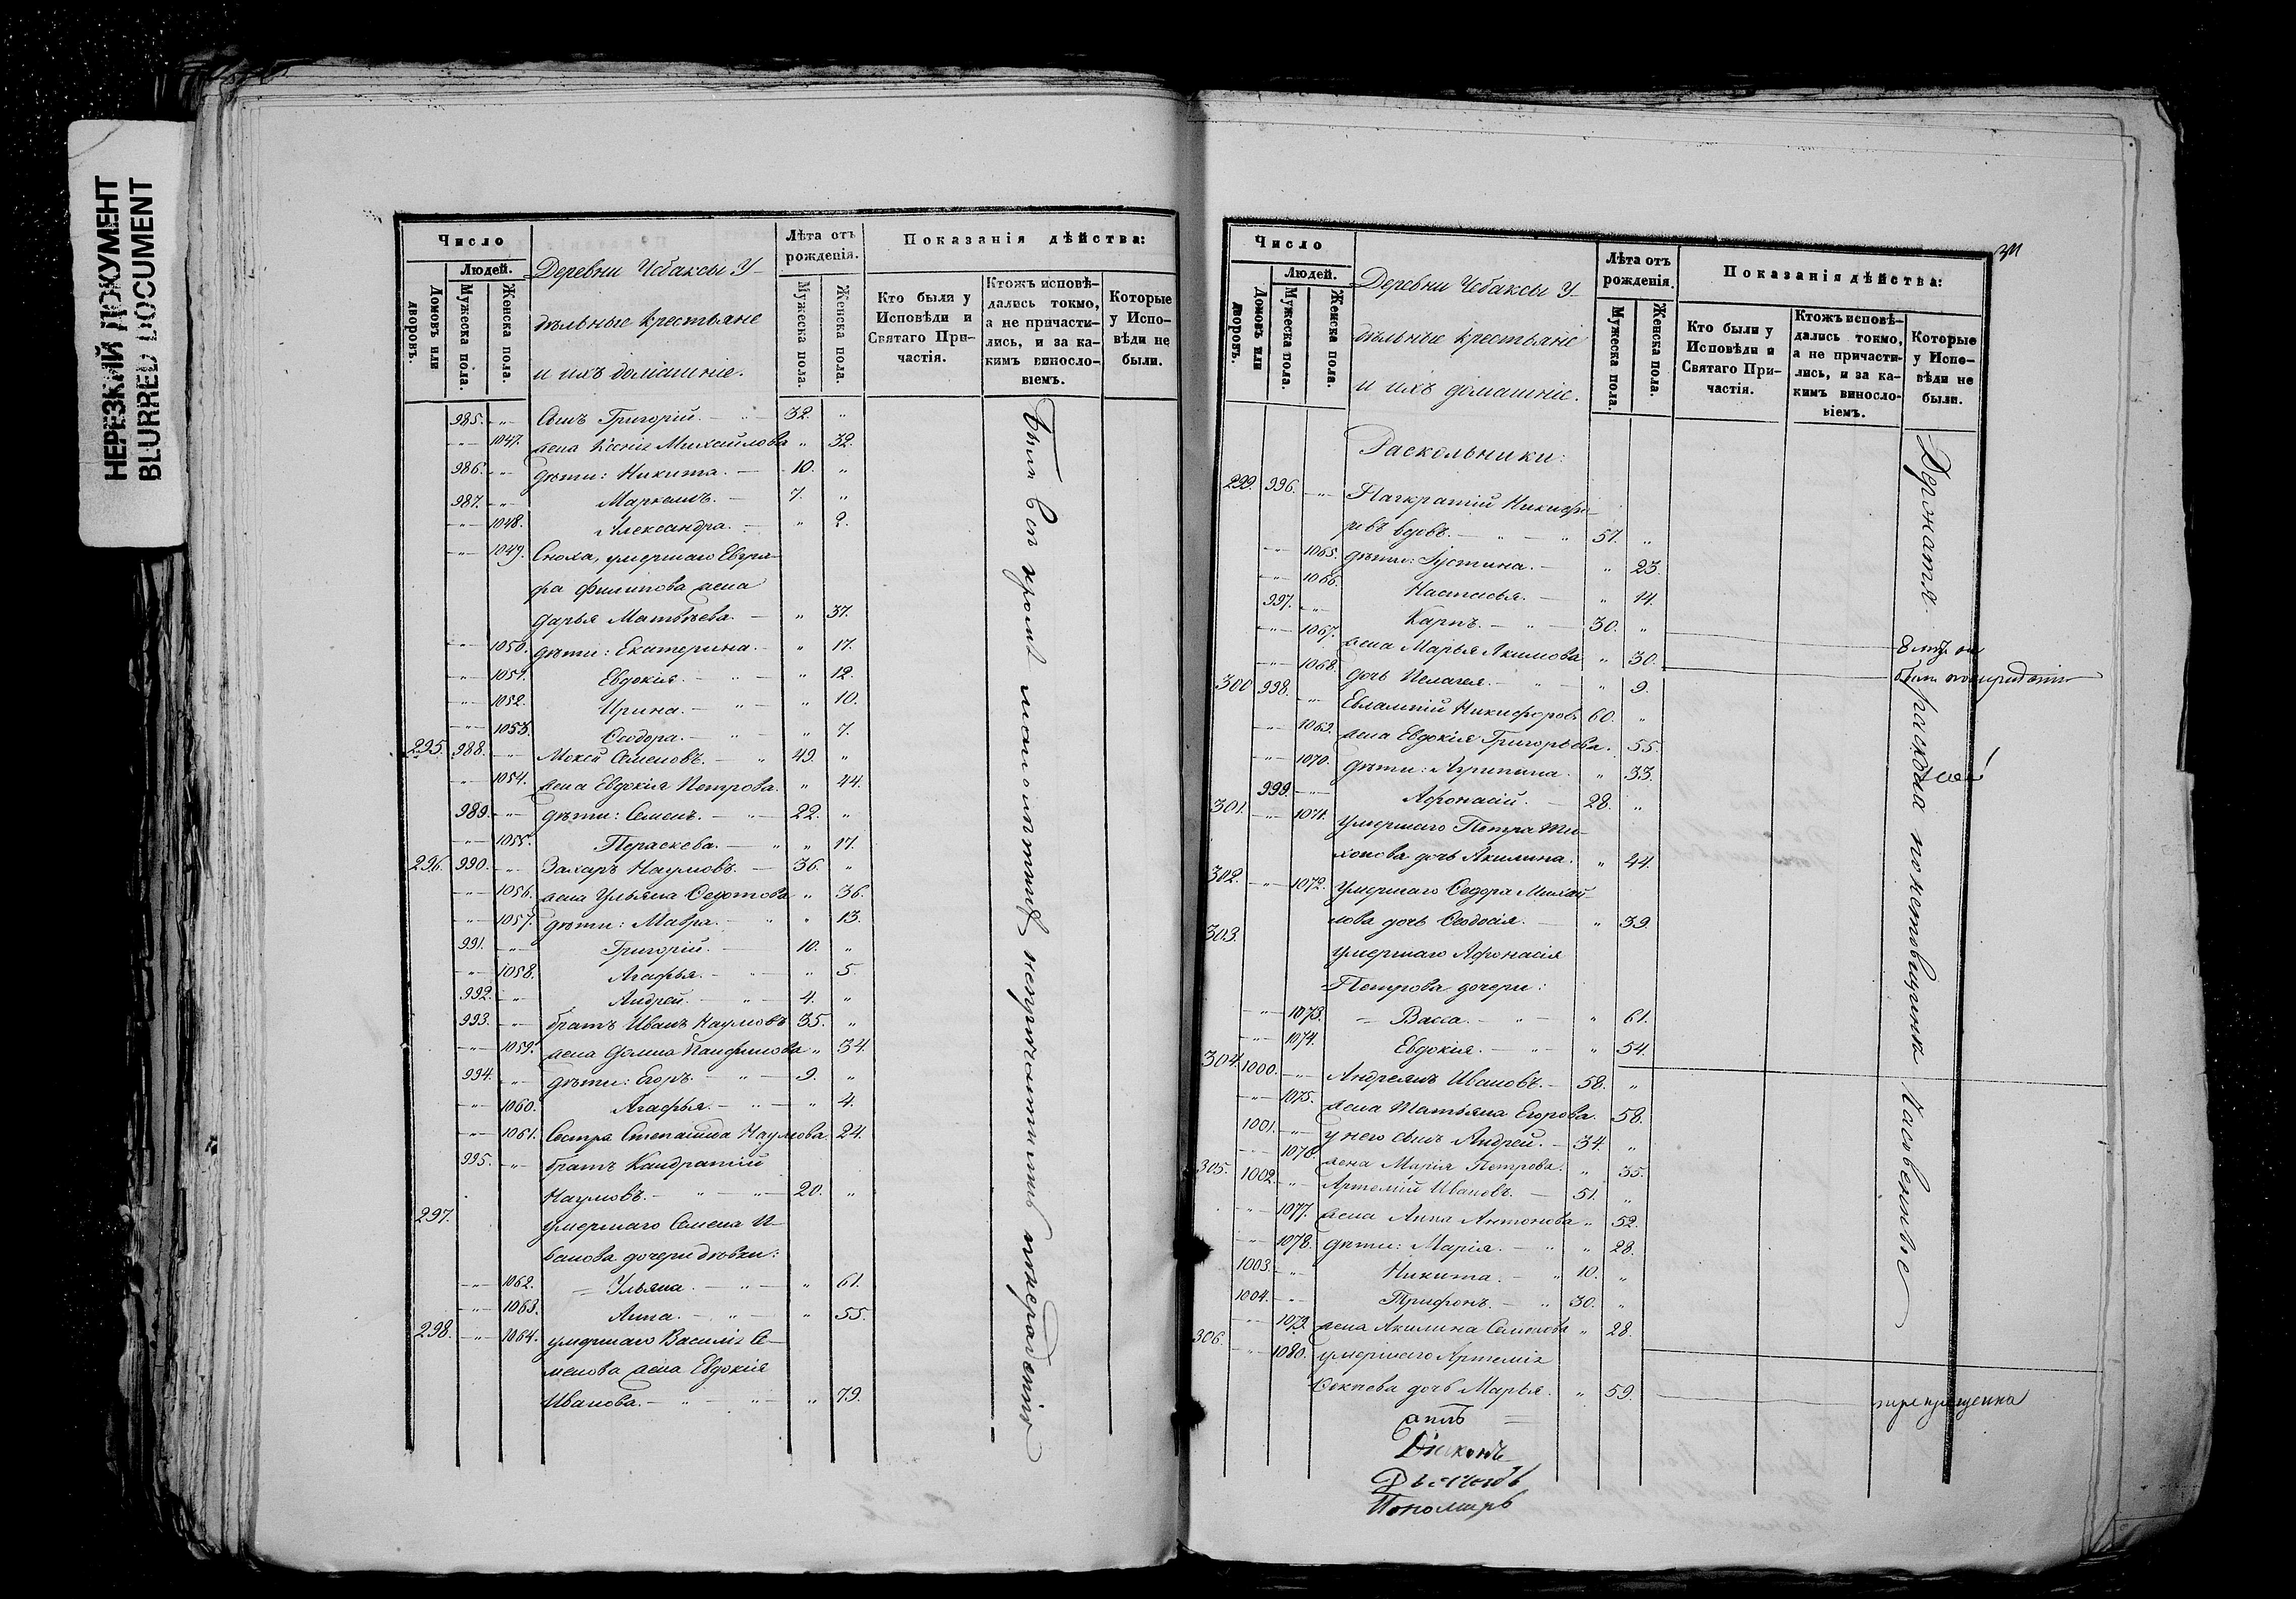 НЕРЕЗКИЙ ДОКУМЕНТ
BLURRED DOCUMENT
Число
Людей.
Домовъ или дворовъ.
Мужеска пола.
Женска пола.
Деревни Чебаксы У-
дѣльные крестьяне
и ихъ домашніе.
Лѣта отъ рожденія.
Мужеска пола.
Женска пола.
Показанія дѣйства:
Кто были у Исповѣди и Святаго При-частія.
Ктожъ исповѣ-дались токмо, а не причасти-лись, и за ка-кимъ винosло-віемъ.
Которые у Испо-вѣди не были.
985. -"- Сынъ Григорій. 32. "
-"- 1047. жена Ксенія Михайлова " 32.
986. -"- дѣти: Никита. 10. "
987. -"- Маркелъ. 7. "
-"- 1048. Александра. " 2.
-"- 1049. Сноха, умершаго Евгра-
фа Филипова жена
Дарья Матвѣева. " 37.
-"- 1050. дѣти: Екатерина. " 17.
-"- 1051. Евдокія. " 12.
-"- 1052. Ирина. " 10.
-"- 1053. Ѳеодора. " 7.
295. 988. -"- Мокей Семеновъ. 49. "
-"- 1054. жена Евдокія Петрова. " 44.
989. -"- дѣти: Семенъ. 22. "
-"- 1055. Пераскева. " 17.
296. 990. -"- Захаръ Наумовъ. 36. "
-"- 1056. жена Ульяна Ѳедотова " 36.
-"- 1057. дѣти: Мавра. " 13.
991. -"- Григорій. 10. "
-"- 1058. Агафья. " 5.
992. -"- Андрей. 4. "
993. -"- братъ Иванъ Наумовъ 35. "
-"- 1059. жена Ѳомна Панфилова " 34.
994. -"- дѣти: Егоръ. 9. "
-"- 1060. Агафья. " 4.
-"- 1061. Сестра Степанида Наумова. 24.
995. -"- братъ Кандратій
Наумовъ. 20. "
297. умершаго Семена И-
ванова дочери дѣвки:
-"- 1062. Ульяна. " 61.
-"- 1063. Анна. " 55.
298. -"- 1064. умершаго Василія Се-
менова жена Евдокія
Иванова. " 79.
Были вси кромѣ малолѣтнихъ
Число
Людей.
Домовъ или дворовъ.
Мужеска пола.
Женска пола.
Деревни Чебаксы У-
дѣльные крестьяне
и ихъ домашніе.
Лѣта отъ рожденія.
Мужеска пола.
Женска пола.
Показанія дѣйства:
Кто были у Исповѣди и Святаго При-частія.
Ктожъ исповѣ-дались токмо, а не причасти-лись, и за ка-кимъ винosло-віемъ.
Которые у Испо-вѣди не были.
Раскольники:
299. 996. -"- Панкратій Никифо-
ровъ вдовъ. 57. "
-"- 1065. дѣти: Іустина. " 23.
-"- 1066. Настасья. " 14.
997. -"- Карпъ. 30. "
-"- 1067. жена Марья Акимова " 30.
-"- 1068. дочь Пелагея. " 9.
300 998. -"- Евлампій Никифоровъ 60. "
-"- 1069. жена Евдокія Григорьева. 55.
-"- 1070. дѣти: Агрипина. " 33.
999. -"- Афонасій. 28. "
301. -"- 1071. умершаго Петра Ти-
хонова дочь Акилина. " 44.
302. -"- 1072. умершаго Ѳедора Михай-
лова дочь Ѳеодосія. " 39.
303. умершаго Афонасія
Петрова дочери:
-"- 1073. Васса. " 61.
-"- 1074. Евдокія. " 54.
304. 1000. -"- Андреянъ Ивановъ. 58. "
-"- 1075. жена Татьяна Егорова. 58.
1001. -"- у него сынъ Андрей. 34. "
-"- 1076. жена Марія Петрова. " 35.
305. 1002. -"- Артемій Ивановъ. 51. "
-"- 1077. жена Анна Антонова " 52.
-"- 1078. дѣти: Марія. " 28.
1003. -"- Никита. 10. "
1004. -"- Трифонъ. 30. "
-"- 1079. жена Акилина Семенова " 28.
306. -"- 1080. умершаго Артемія
дочь Марья. " 59.
Держатъ расколъ
Дьяконъ
Дьячокъ
Пономарь